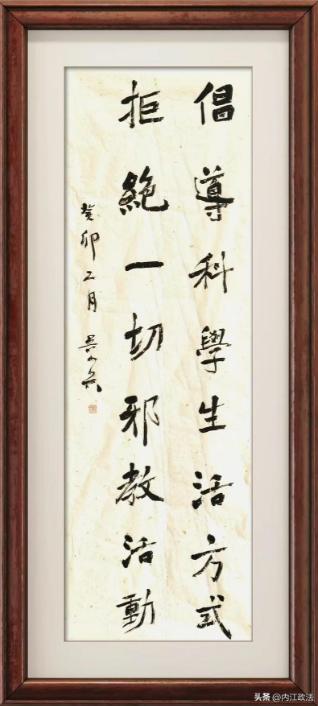 倡導科學生活方式
拒絕一切邪教活動
癸卯二月
头条 @内江政法